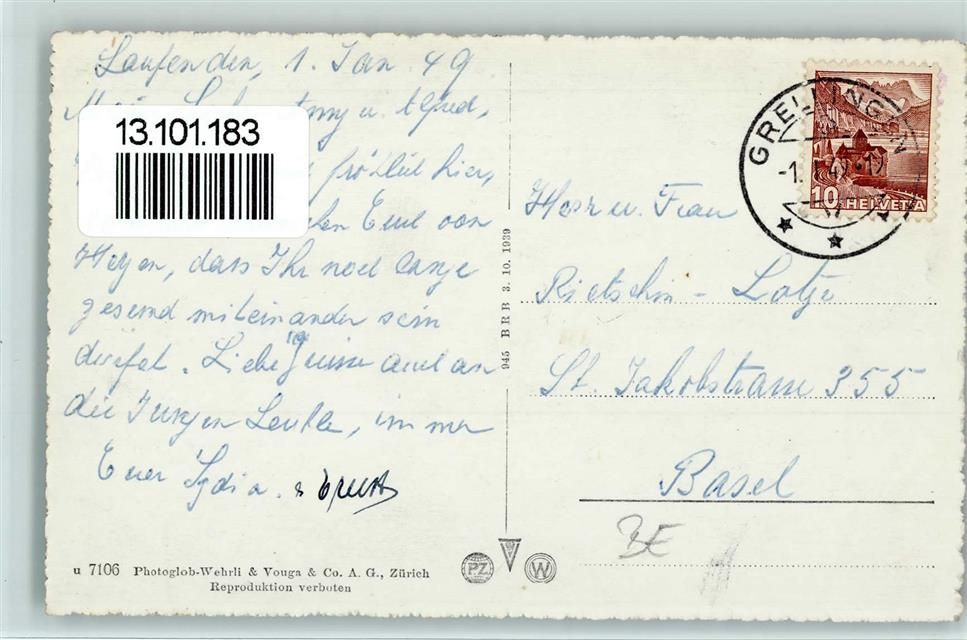 Laufen den, 1. Jan 49
u. Alfred,
13.101.183
fröhlich hier,
Euch von
Herzen, dass Ihr noch lange
gesund miteinander sein
dürfet. Liebe Grüsse auch an
die Jungen Leute, immer
Euer Lydia. & Ernst
Herr u. Frau
Rietschin - Lotze
St. Jakobstrasse 355
Basel
BE
GRELLINGEN
10 HELVETIA
945 BRB 3. 10. 1939
u 7106 Photoglob-Wehrli & Vouga & Co. A. G., Zürich
Reproduktion verboten
PZ
W